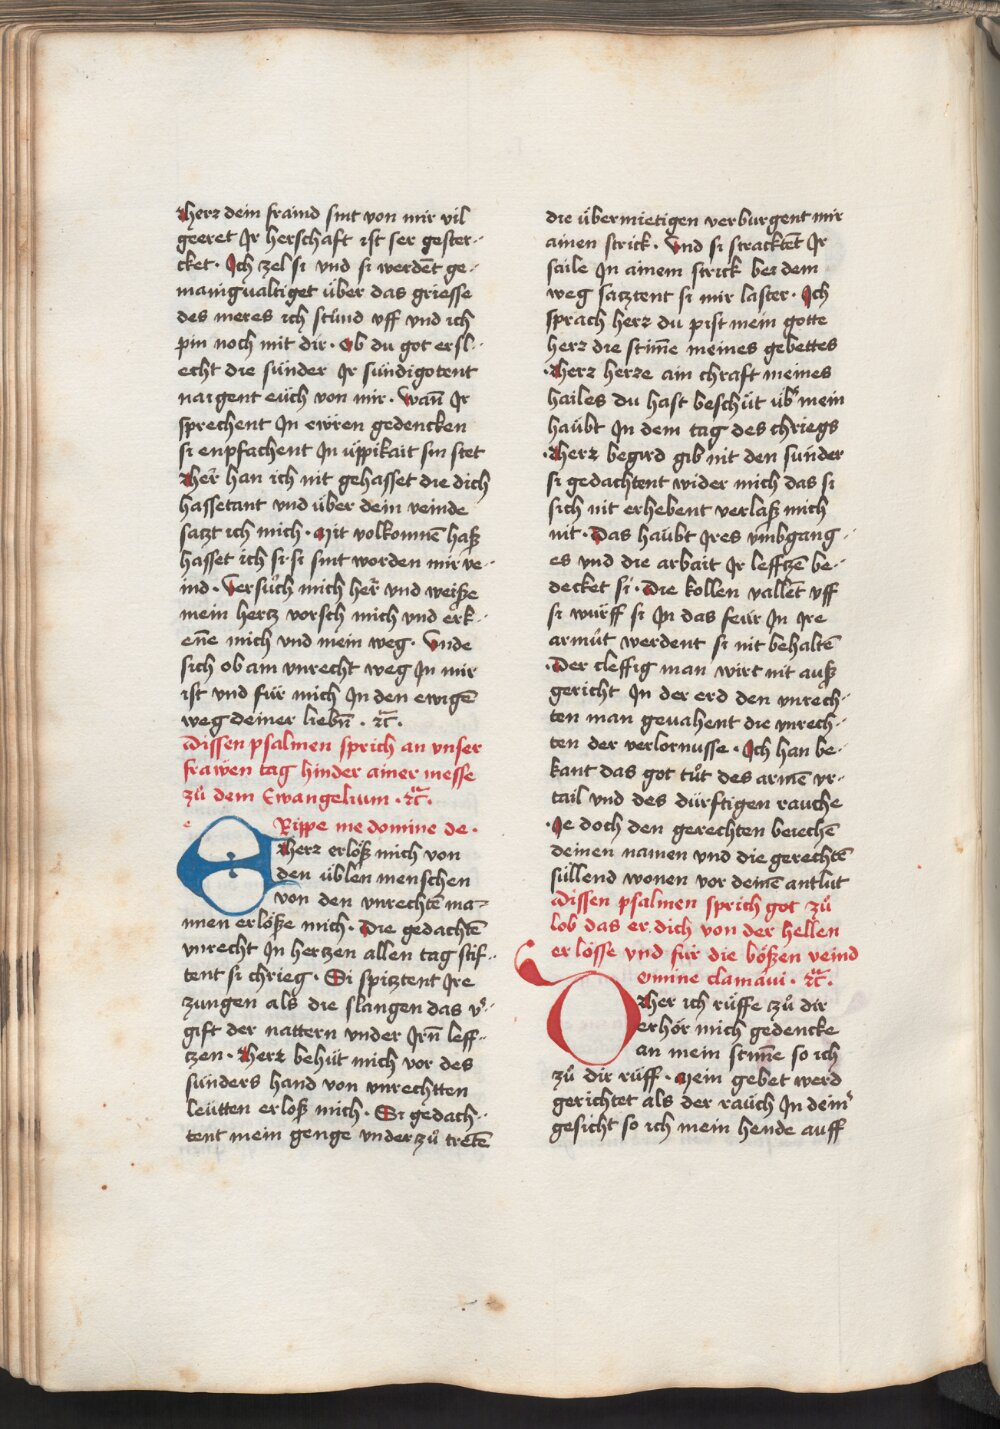 Herr dein fraind sint von mir vil
geeret Jr herschaft ist ser gester-
cket · Jch zel si vnd si werdēt ge-
manigualtiget über das griesse
des meres ich stůnd vff vnd ich
pin noch mit dir · Ob du got ersl-
echt die sünder Jr sündigotent
naigent eüch von mir · Wañ Jr
sprechent Jn ewren gedencken
si enpfachent Jn üppikait sin stet
Her̄ han ich nit gehasset die dich
hassetant vnd über dein veinde
satzt ich mich · Mit volkomnē haß
hasset ich si · si sint worden mir ve-
ind · Versůch mich her̄ vnd weiße
mein hertz vorsch mich vnd erk-
eñe mich vnd mein weg · Vnde
sich ob am vnrecht weg Jn mir
ist vnd für mich Jn den ewigē
weg deiner liebñ · ꝛc̄ ·
Dissen psalmen sprich an vnser
frawen tag hinder ainer messe
zů dem Ewangelium · ꝛc̄ ·
e
Rippe me domine de ·
Herr erlöß mich von
den üblen menschen
von den vnrechtē ma-
nnen erlöße mich · Die gedachtē
vnrecht Jn hertzen allen tag stif-
tent si chrieg · Si spiztent Jre
zungen als die slangen das v̓-
gift der nattern vnder Jrñ leff-
tzen · Herr behüt mich vor des
sünders hand von vnrechtten
leütten erloß mich · Si gedach-
tent mein genge vnder zů tretē
die übermietigen verburgent mir
ainen strick · Vnd si stracktēt Jr
saile Jn ainem strick bei dem
weg satztent si mir laster · Jch
sprach herr du pist mein gotte
herr die stim̄e meines gebettes
· Herr herre ain chraft meines
hailes du hast beschüt üb̓ mein
haübt Jn dem tag des chriegs
· Herr begird gib nit den sünder
si gedachtent wider mich das si
sich nit erhebent verlaß mich
nit · Das haübt Jres vmbgang-
es vnd die arbait Jr lefftzē be-
decket si · Die kollen vallēt vff
si würff si Jn das feür Jn Jre
armůt werdent si nit behaltē
· Der cleffig man wirt nit auß
gericht Jn der erd den vnrech-
ten man gevahent die vnrech-
ten der verlornusse · Jch han be-
kant das got tůt des armē vr-
tail vnd des dürftigen rauche
· Je doch den gerechten beiechē
deinen namen vnd die gerechtē
süllend wonen vor deinē antlut
Dissen psalmen sprich got zů
lob das er dich von der hellen
er lösse vnd für die bößen veind
Domine clamaui · ꝛc̄ ·
Her ich rüffe zů dir
erhör mich gedencke
an mein stim̄e so ich
zů dir rüff · Mein gebet werd
gerichtet als der rauch Jn dein̓
gesicht so ich mein hende auff